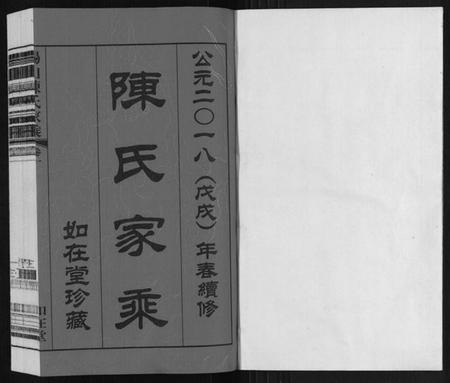 公元二〇一八(戊戌)年春續修
陳氏家乘
如在堂珍藏